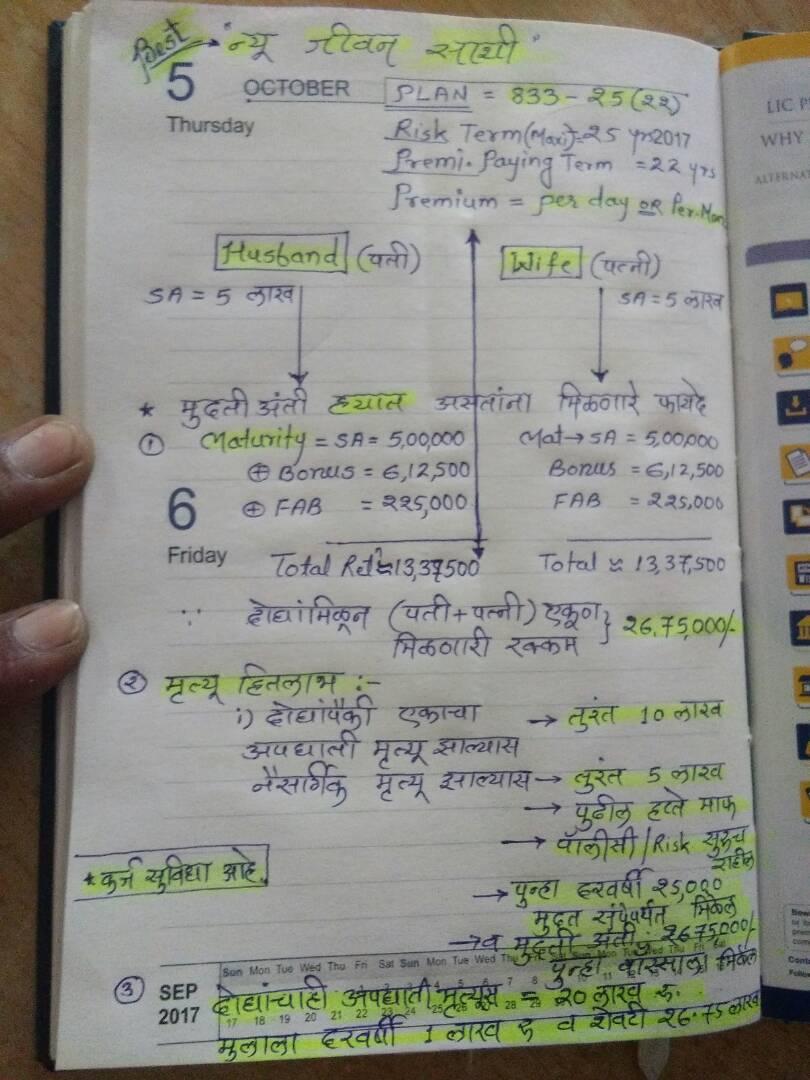 Best → "न्यू जीवन साथी"
5 OCTOBER PLAN = 833 - 25(22)
Thursday Risk Term(Maxi)=25 yrs 2017
Premi. Paying Term = 22 yrs
Premium = per day OR Per. Mon
Husband (पती) Wife (पत्नी)
SA = 5 लाख SA = 5 लाख
* मुदती अंती हयात असतांना मिळणारे फायदे
① Maturity = SA = 5,00,000 Mat → SA = 5,00,000
⊕ Bonus = 6,12,500 Bonus = 6,12,500
6 ⊕ FAB = 225,000 FAB = 225,000
Friday Total Ret ≈ 13,37500 Total ≈ 13,37,500
∵ दोघांमिळून (पती+पत्नी) एकूण
मिळणारी रक्कम } 26,75,000/-
② मृत्यू हितलाभ :-
i) दोघांपैकी एकाचा → तुरंत 10 लाख
अपघाती मृत्यू झाल्यास
नैसर्गिक मृत्यू झाल्यास → तुरंत 5 लाख
→ पुढील हप्ते माफ
→ पॉलीसी/Risk सुरुच
राहील
* कर्ज सुविधा आहे.
→ पुन्हा दरवर्षी 25,000
मुदत संपेपर्यंत मिळेल
→ व मुदती अंती : 2675000/-
पुन्हा वारसाला मिळेल
Sun Mon Tue Wed Thu Fri Sat Sun Mon Tue Wed Thu Fri Sat
③ SEP दोघांचाही अपघाती मृत्यूस = 20 लाख रु.
2017 17 18 19 20 21 22 23 24 25 26 27 28 29
मुलाला दरवर्षी 1 लाख रु व शेवटी 26.75 लाख
LIC P
WHY
ALTERNAT